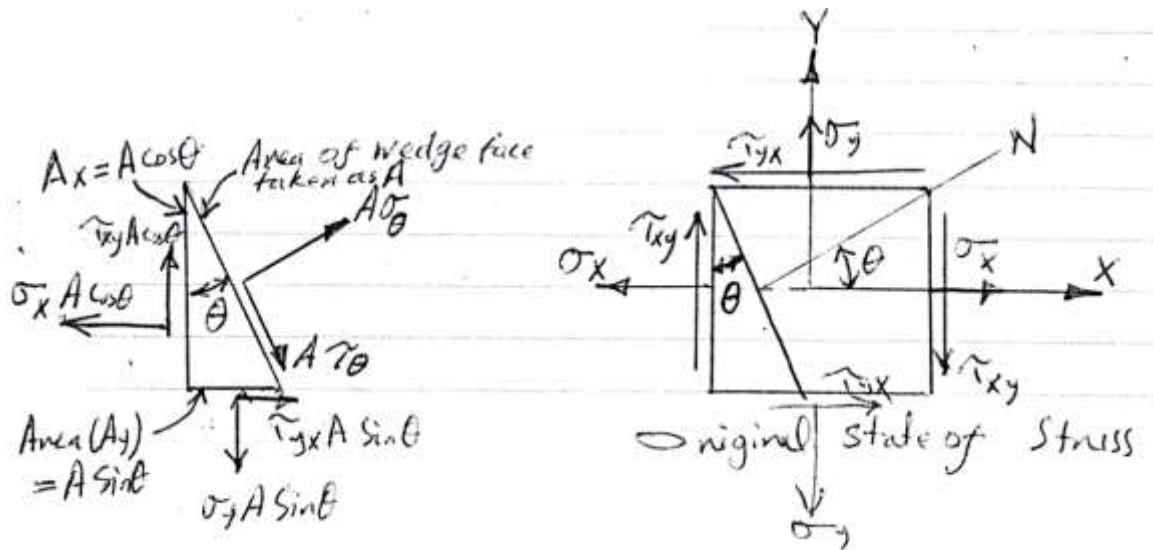 Ax = A cosθ
Area of wedge face
taken as A
τxy A cosθ
σx A cosθ
θ
Aσθ
Aτθ
Area (Ay)
= A sinθ
τyx A Sinθ
σy A Sinθ
Y
σy
τyx
N
τxy
σx
θ
θ
σx
X
τxy
τyx
Original state of Stress
σy